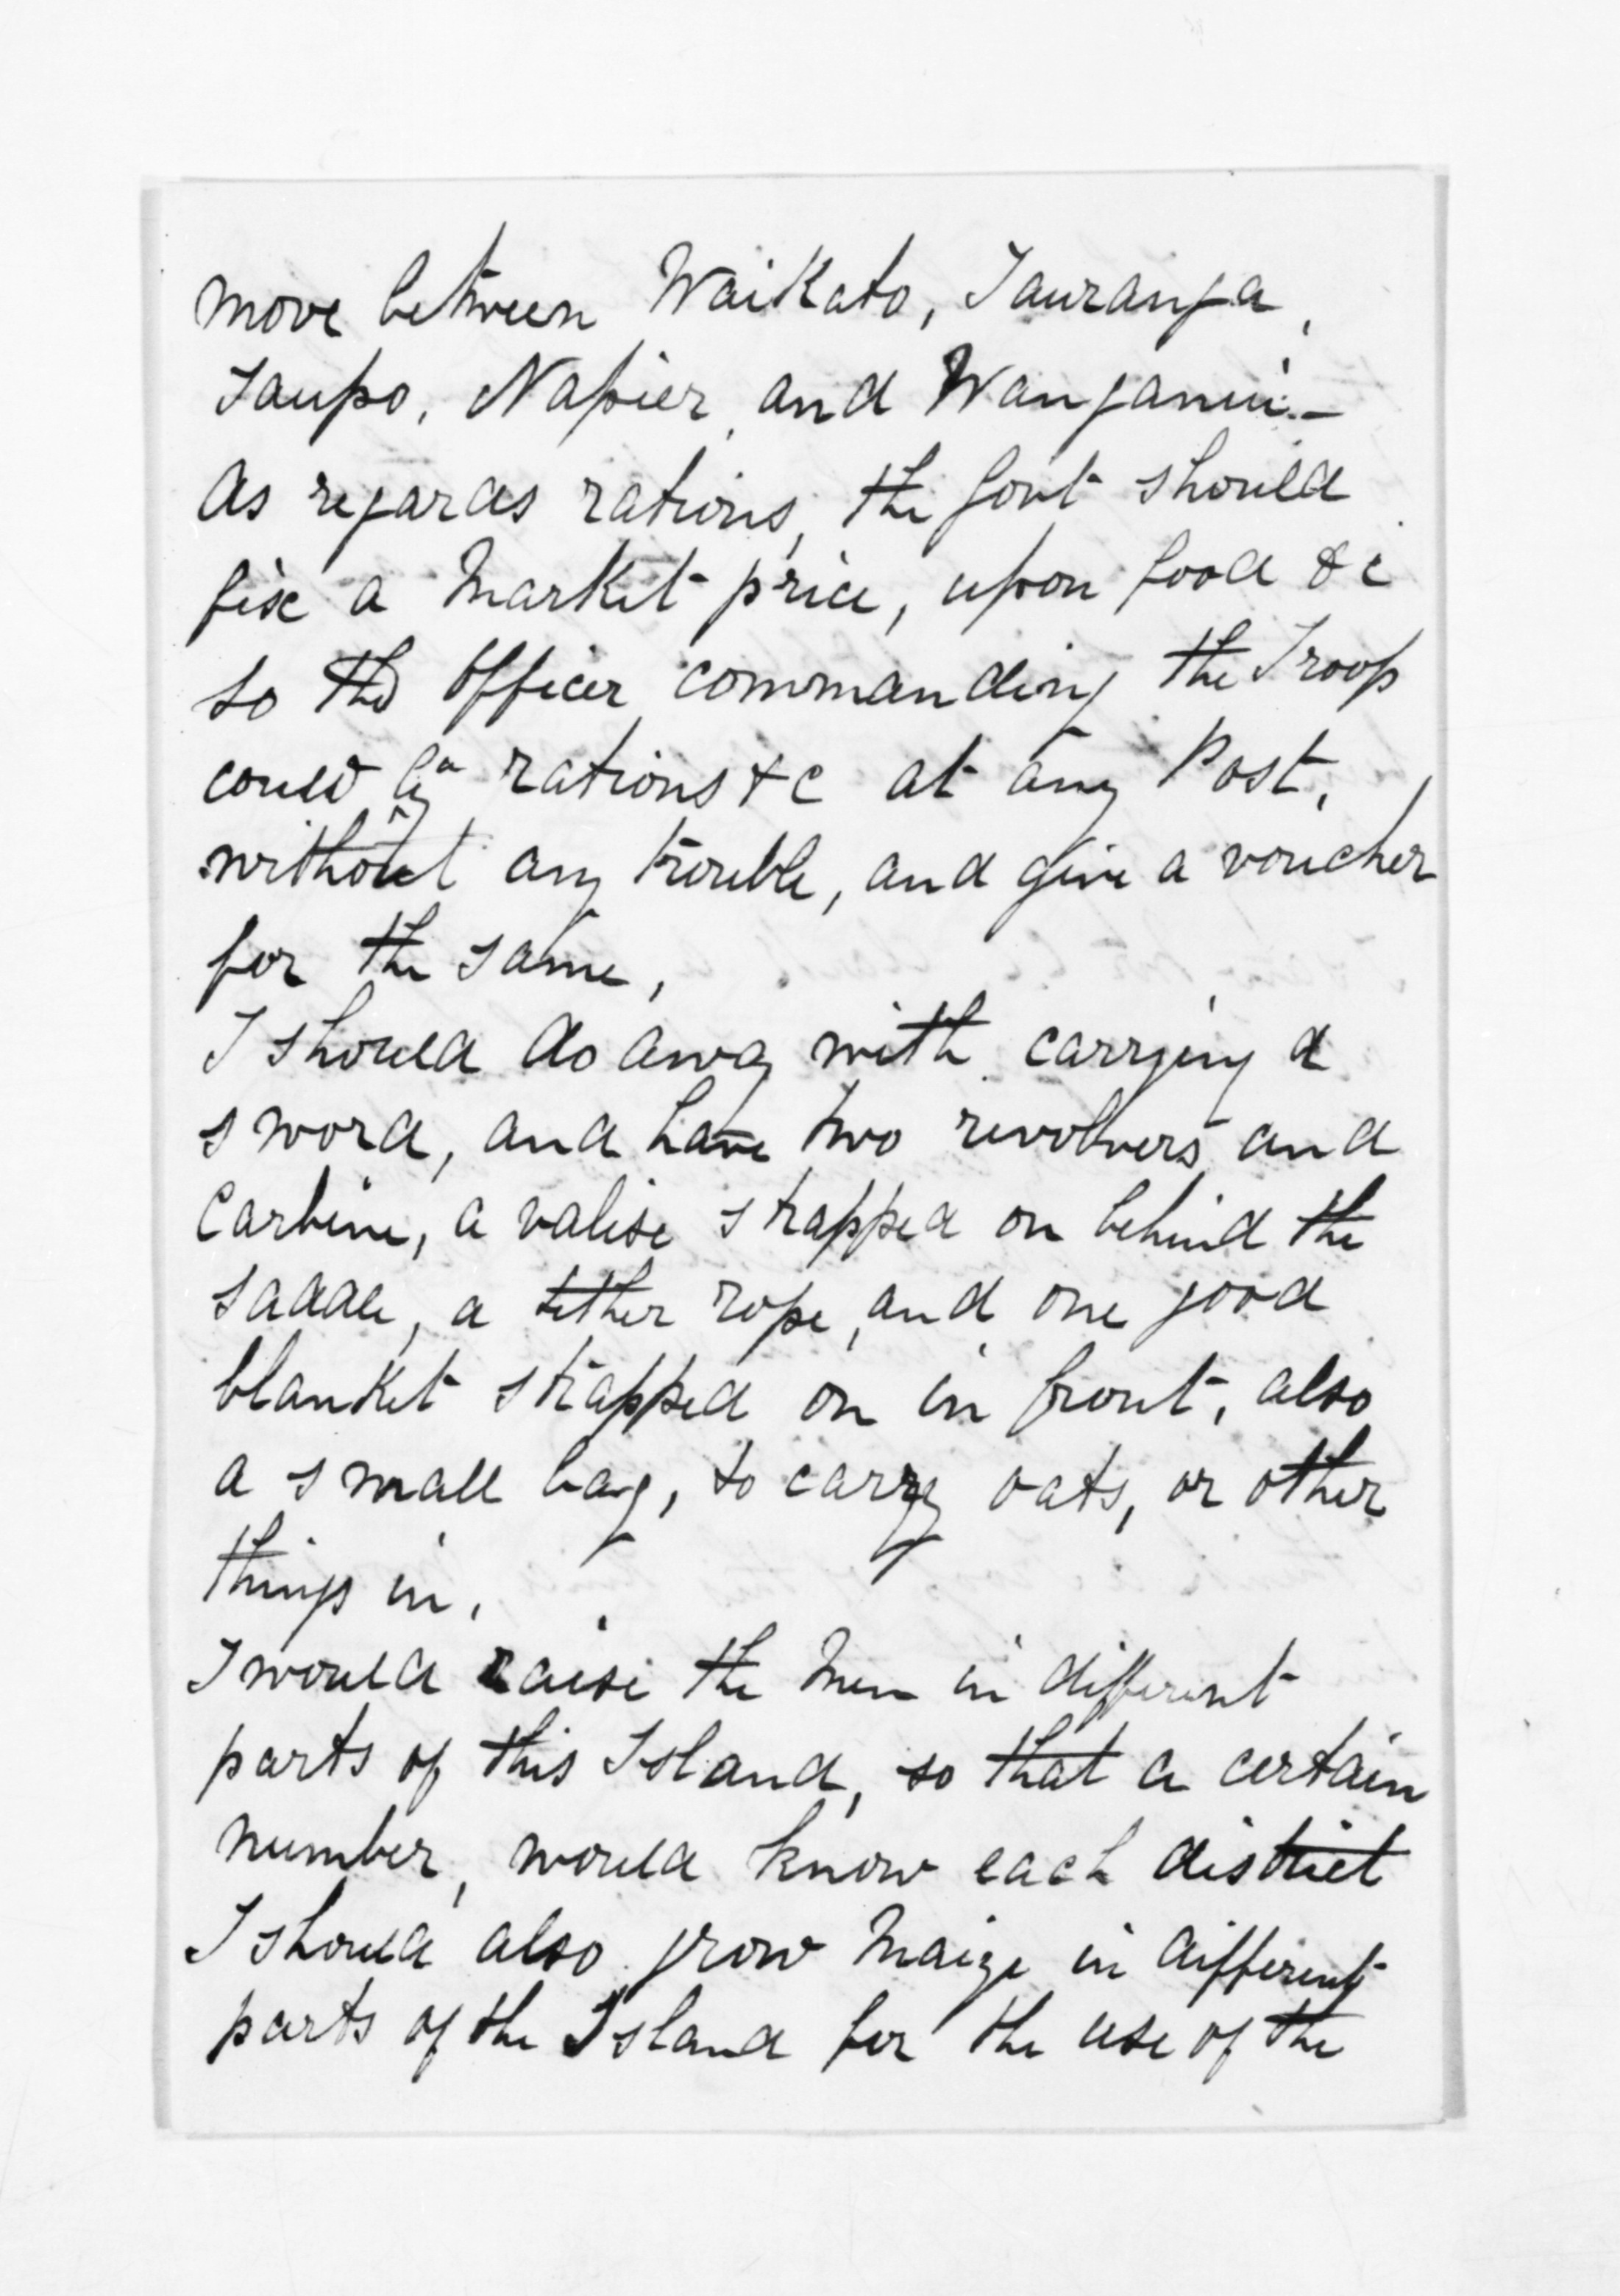 move between Waikato, Tauranga,
Taupo, Napier, and Wanganui. —
As regards rations, the Govt should
fix a Market price, upon food &c
so the Officer commanding the Troop
could rations &c at any Post,
without any trouble, and give a voucher
for the same,
I should do away with carrying a
sword, and have two revolvers and
Carbine, a valise strapped on behind the
saddle, a tether rope, and one good
blanket strapped on in front, also
a small bag, to carry oats, or other
things in,
I would raise the Men in different
parts of this Island, so that a certain
number, would know each district
I should also grow Maize in different
parts of the Island for the use of the